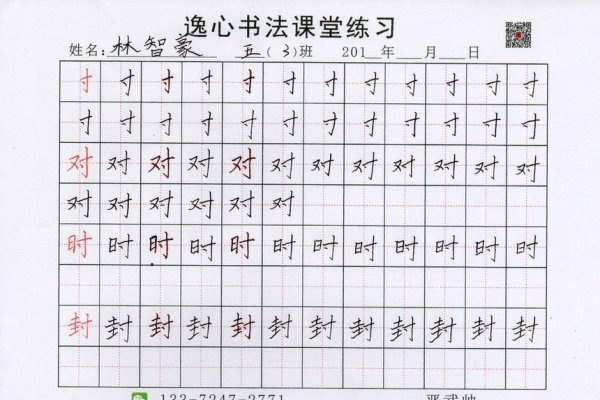 逸心书法课堂练习
姓名: 林智豪 五 (3)班 201 年 月 日
寸 寸 寸 寸 寸 寸 寸 寸 寸 寸 寸 寸
寸 寸 寸 寸 寸 寸 寸 寸 寸 寸 寸 寸
对 对 对 对 对 对 对 对 对 对 对 对
对 对 对 对 对 对
时 时 时 时 时 时 时 时 时 时 时 时
封 封 封 封 封 封 封 封 封 封 封 封
133-7247-2771